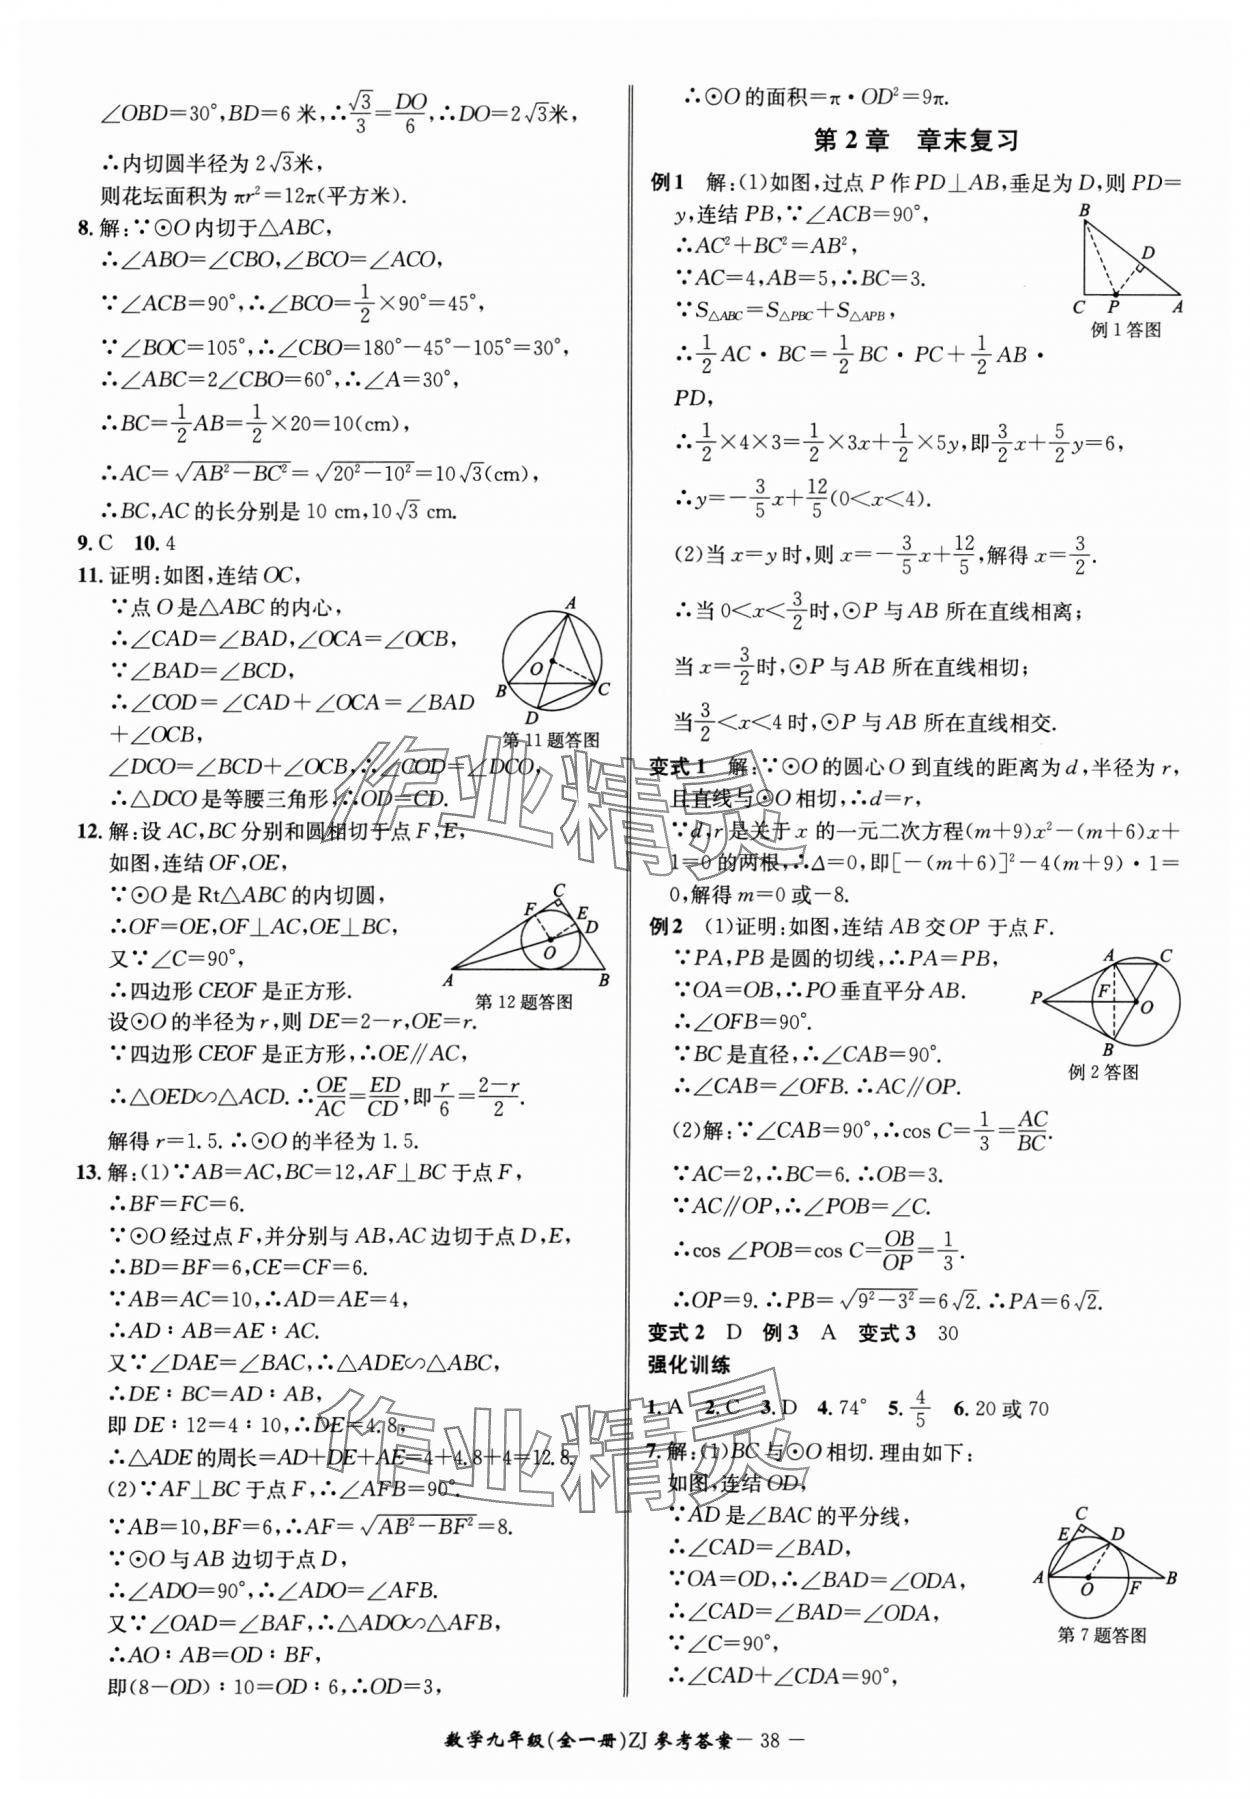 ∠OBD=30°,BD=6 米,∴√3/3=DO/6,∴DO=2√3米,
∴内切圆半径为 2√3米,
则花坛面积为 πr²=12π(平方米).
8. 解:∵⊙O 内切于△ABC,
∴∠ABO=∠CBO,∠BCO=∠ACO,
∵∠ACB=90°,∴∠BCO=1/2×90°=45°,
∵∠BOC=105°,∴∠CBO=180°-45°-105°=30°,
∴∠ABC=2∠CBO=60°,∴∠A=30°,
∴BC=1/2AB=1/2×20=10(cm),
∴AC=√(AB²-BC²)=√(20²-10²)=10√3(cm),
∴BC,AC 的长分别是 10 cm,10√3 cm.
9. C 10. 4
11. 证明:如图,连结 OC,
∵点 O 是△ABC 的内心,
∴∠CAD=∠BAD,∠OCA=∠OCB,
∵∠BAD=∠BCD,
∴∠COD=∠CAD+∠OCA=∠BAD
+∠OCB,
A
O
B
C
D
第 11 题答图
∠DCO=∠BCD+∠OCB,∴∠COD=∠DCO,
∴△DCO 是等腰三角形,∴OD=CD.
12. 解:设 AC,BC 分别和圆相切于点 F,E,
如图,连结 OF,OE,
∵⊙O 是 Rt△ABC 的内切圆,
∴OF=OE,OF⊥AC,OE⊥BC,
又∵∠C=90°,
∴四边形 CEOF 是正方形.
C
F
E
D
O
A
B
第 12 题答图
设⊙O 的半径为 r,则 DE=2-r,OE=r.
∵四边形 CEOF 是正方形,∴OE∥AC,
∴△OED∽△ACD.∴OE/AC=ED/CD,即r/6=(2-r)/2.
解得 r=1.5.∴⊙O 的半径为 1.5.
13. 解:(1)∵AB=AC,BC=12,AF⊥BC 于点 F,
∴BF=FC=6.
∵⊙O 经过点 F,并分别与 AB,AC 边切于点 D,E,
∴BD=BF=6,CE=CF=6.
∵AB=AC=10,∴AD=AE=4,
∴AD∶AB=AE∶AC.
又∵∠DAE=∠BAC,∴△ADE∽△ABC,
∴DE∶BC=AD∶AB,
即 DE∶12=4∶10,∴DE=4.8,
∴△ADE 的周长=AD+DE+AE=4+4.8+4=12.8.
(2)∵AF⊥BC 于点 F,∴∠AFB=90°.
∵AB=10,BF=6,∴AF=√(AB²-BF²)=8.
∵⊙O 与 AB 边切于点 D,
∴∠ADO=90°,∴∠ADO=∠AFB.
又∵∠OAD=∠BAF,∴△ADO∽△AFB,
∴AO∶AB=OD∶BF,
即(8-OD)∶10=OD∶6,∴OD=3,
∴⊙O 的面积=π·OD²=9π.
第 2 章 章末复习
例1 解:(1)如图,过点 P 作 PD⊥AB,垂足为 D,则 PD=
y,连结 PB,∵∠ACB=90°,
∴AC²+BC²=AB²,
∵AC=4,AB=5,∴BC=3.
∵S△ABC=S△PBC+S△APB,
B
D
C
P
A
例 1 答图
∴1/2 AC·BC=1/2 BC·PC+1/2 AB·
PD,
∴1/2×4×3=1/2×3x+1/2×5y,即3/2x+5/2y=6,
∴y=-3/5x+12/5(0<x<4).
(2)当 x=y 时,则 x=-3/5x+12/5,解得 x=3/2.
∴当 0<x<3/2时,⊙P 与 AB 所在直线相离;
当 x=3/2时,⊙P 与 AB 所在直线相切;
当3/2<x<4 时,⊙P 与 AB 所在直线相交.
变式 1 解:∵⊙O 的圆心 O 到直线的距离为 d,半径为 r,
且直线与⊙O 相切,∴d=r,
∵d,r 是关于 x 的一元二次方程(m+9)x²-(m+6)x+
1=0 的两根,∴Δ=0,即[-(m+6)]²-4(m+9)·1=
0,解得 m=0 或-8.
例2 (1)证明:如图,连结 AB 交 OP 于点 F.
∵PA,PB 是圆的切线,∴PA=PB,
∵OA=OB,∴PO 垂直平分 AB.
∴∠OFB=90°.
∵BC 是直径,∴∠CAB=90°.
∴∠CAB=∠OFB.∴AC∥OP.
A
C
P
F
O
B
例 2 答图
(2)解:∵∠CAB=90°,∴cos C=1/3=AC/BC.
∵AC=2,∴BC=6.∴OB=3.
∵AC∥OP,∴∠POB=∠C.
∴cos ∠POB=cos C=OB/OP=1/3.
∴OP=9.∴PB=√(9²-3²)=6√2.∴PA=6√2.
变式 2 D 例 3 A 变式 3 30
强化训练
1. A 2. C 3. D 4. 74° 5. 4/5 6. 20 或 70
7. 解:(1)BC 与⊙O 相切.理由如下:
如图,连结 OD,
∵AD 是∠BAC 的平分线,
∴∠CAD=∠BAD,
∵OA=OD,∴∠BAD=∠ODA,
∴∠CAD=∠BAD=∠ODA,
∵∠C=90°,
∴∠CAD+∠CDA=90°,
C
E
D
A
O
F
B
第 7 题答图
作业精灵
作业精灵
数学九年级(全一册)ZJ 参考答案— 38 —